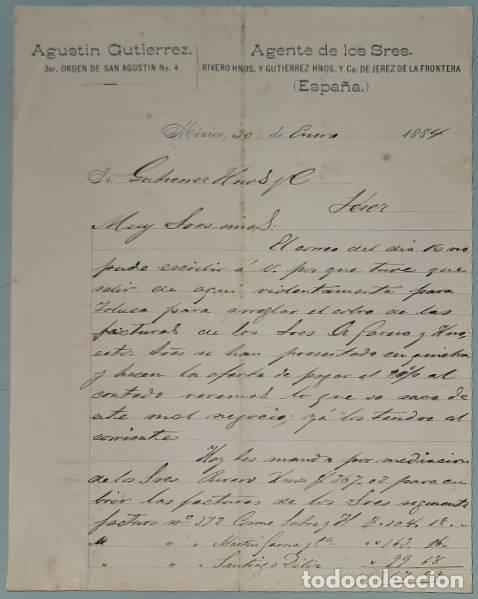 Agustin Gutierrez.
3er. ORDEN DE SAN AGUSTIN No. 4
Agente de los Sres.
RIVERO HNOS. Y GUTIERREZ HNOS. Y Ca. DE JEREZ DE LA FRONTERA
(España.)
Mexico, 20 de Enero 1884
Sr. Gutierrez Hnos y C
Jerez
Muy Sres mios:
El correo del dia 16 no
pude escribir á V. por que tuve que
salir de aqui violentamente para
Toluca para arreglar el cobro de las
facturas de los Sres y Hno,
estos Sres se han presentado en quiebra
y hacen la oferta de pagar el 20% al
contado veremos lo que se saca de
este mal negocio; ya los tendre al
corriente.
Hoy les mando por mediacion
de los Sres Rivero Hnos $ 367.02 para cu-
brir las facturas de los Sres siguiente
factura nº 372 Cosme y H $ 104. 18.
" " " Martin y Ca " " 163. 16.
" " " Santiago " 99 68
todocoleccion.net